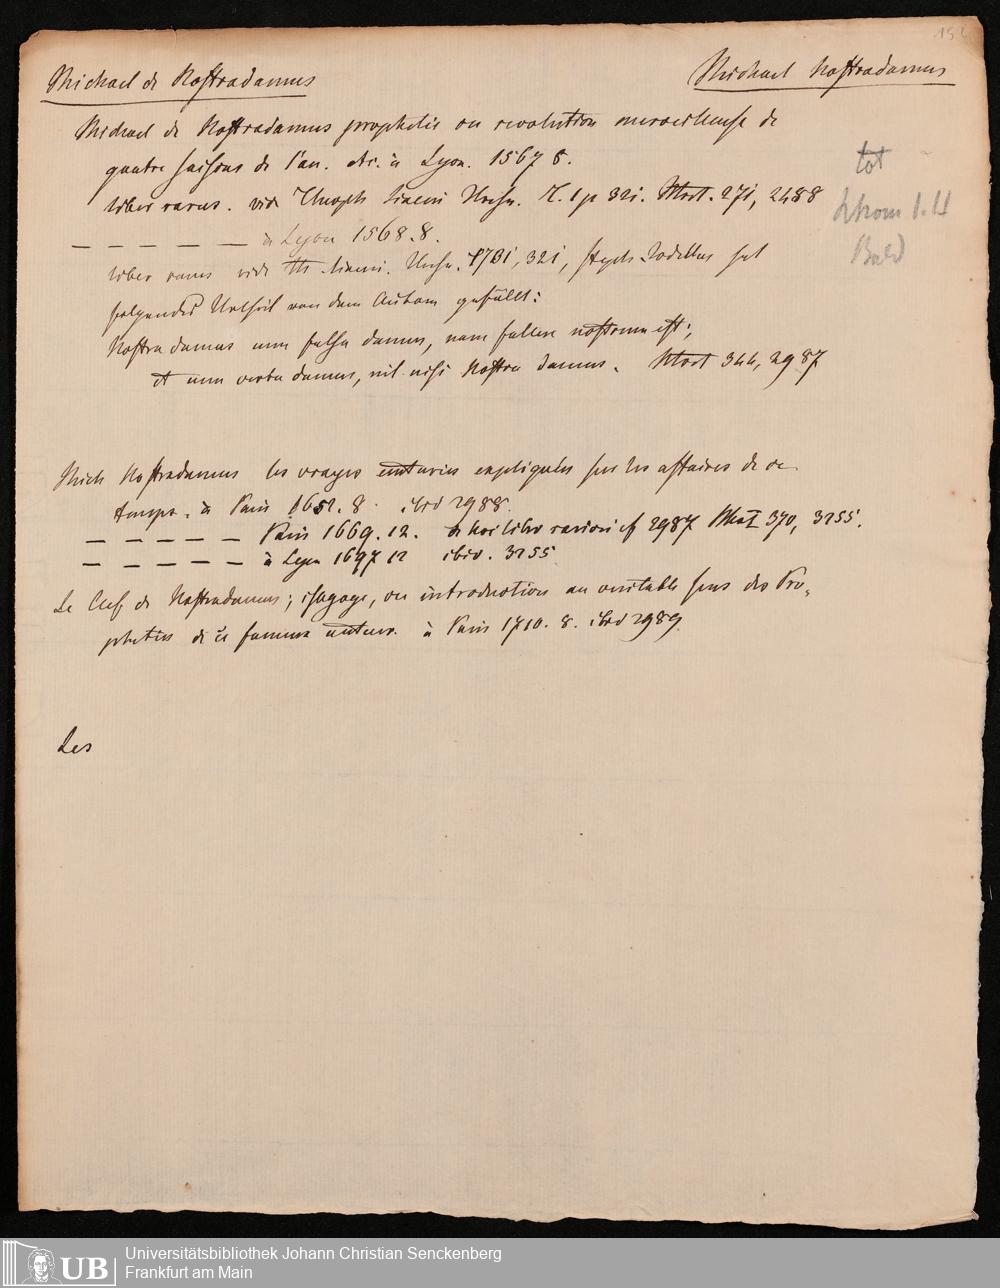 Michael de Nostradamus
Michael Nostradamus
Michael de Nostradamus prophetie ou revolution merveilleuse de
quatre saisons de l'an. etc. à Lyon. 1567 8.
liber rarus. vid. Thoph. Sinceri p 321. 271, 2488
— — — — — à Lyon 1568. 8.
liber rarus vide Th. Sinceri. 321, Steph. Jodellus hat
folgendes Urtheil von dem Autore gefällt:
Nostra damus cum falsa damus, nam fallere nostrum est;
et cum verba damus, nil nisi Nostra damus. 344, 2987
Mich Nostradamus les vrayes centuries expliquées sur les affaires de ce
temps. à Paris 1652. 8. ibid 2988.
— — — — — Paris 1669. 12. de hoc libro rariori cf 2987 370, 3255.
— — — — — à Lyon 1697 12 ibid. 3255
Le Clef de Nostradamus; isagoge, ou introduction au veritable sens des Pro-
pheties de ce fameux auteur. à Paris 1710. 8. ibid 2989.
Les
tot
Bald
Universitätsbibliothek Johann Christian Senckenberg
Frankfurt am Main
UB